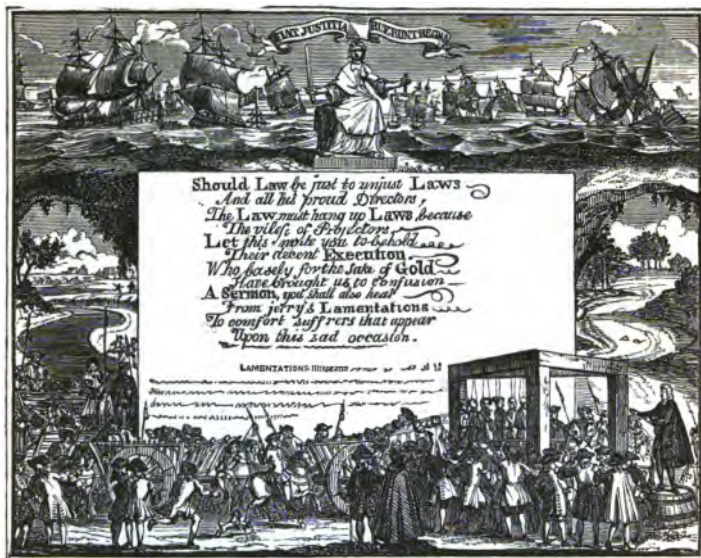 FIAT JUSTITIA RUERUNT REGNA
Should Law be just to unjust Laws
And all his proud Directors,
The Law must hang up Laws because
The vilest of Projectors
Let this invite you to behold
Their decent Execution.
Who basely for the sake of Gold
Have brought us to confusion
A Sermon, you shall also hear
From jerry's Lamentations
To comfort suffrers that appear
Upon this sad occasion.
LAMENTATIONS